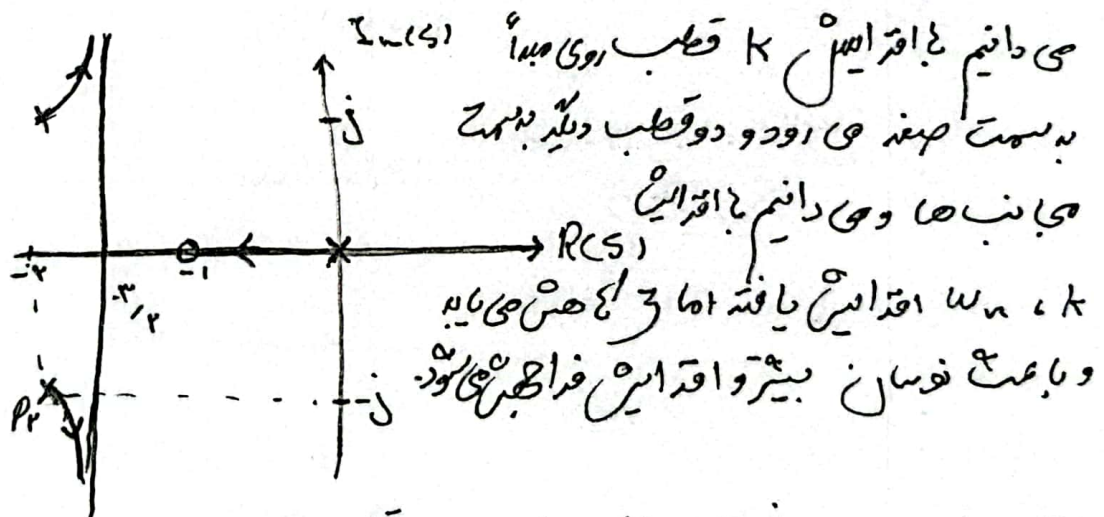 Im(s)
می دانیم با افزایش k قطب روی مبدأ
j
به سمت صفر می رود و دو قطب دیگر به سمت
مجانب ها و می دانیم با افزایش
R(s)
-۲
-۳/۲
-۱
k ، ωn افزایش یافته اما ζ کاهش می یابد
و باعث نوسان بیشتر و افزایش فراجهش می شود.
P۲
-j